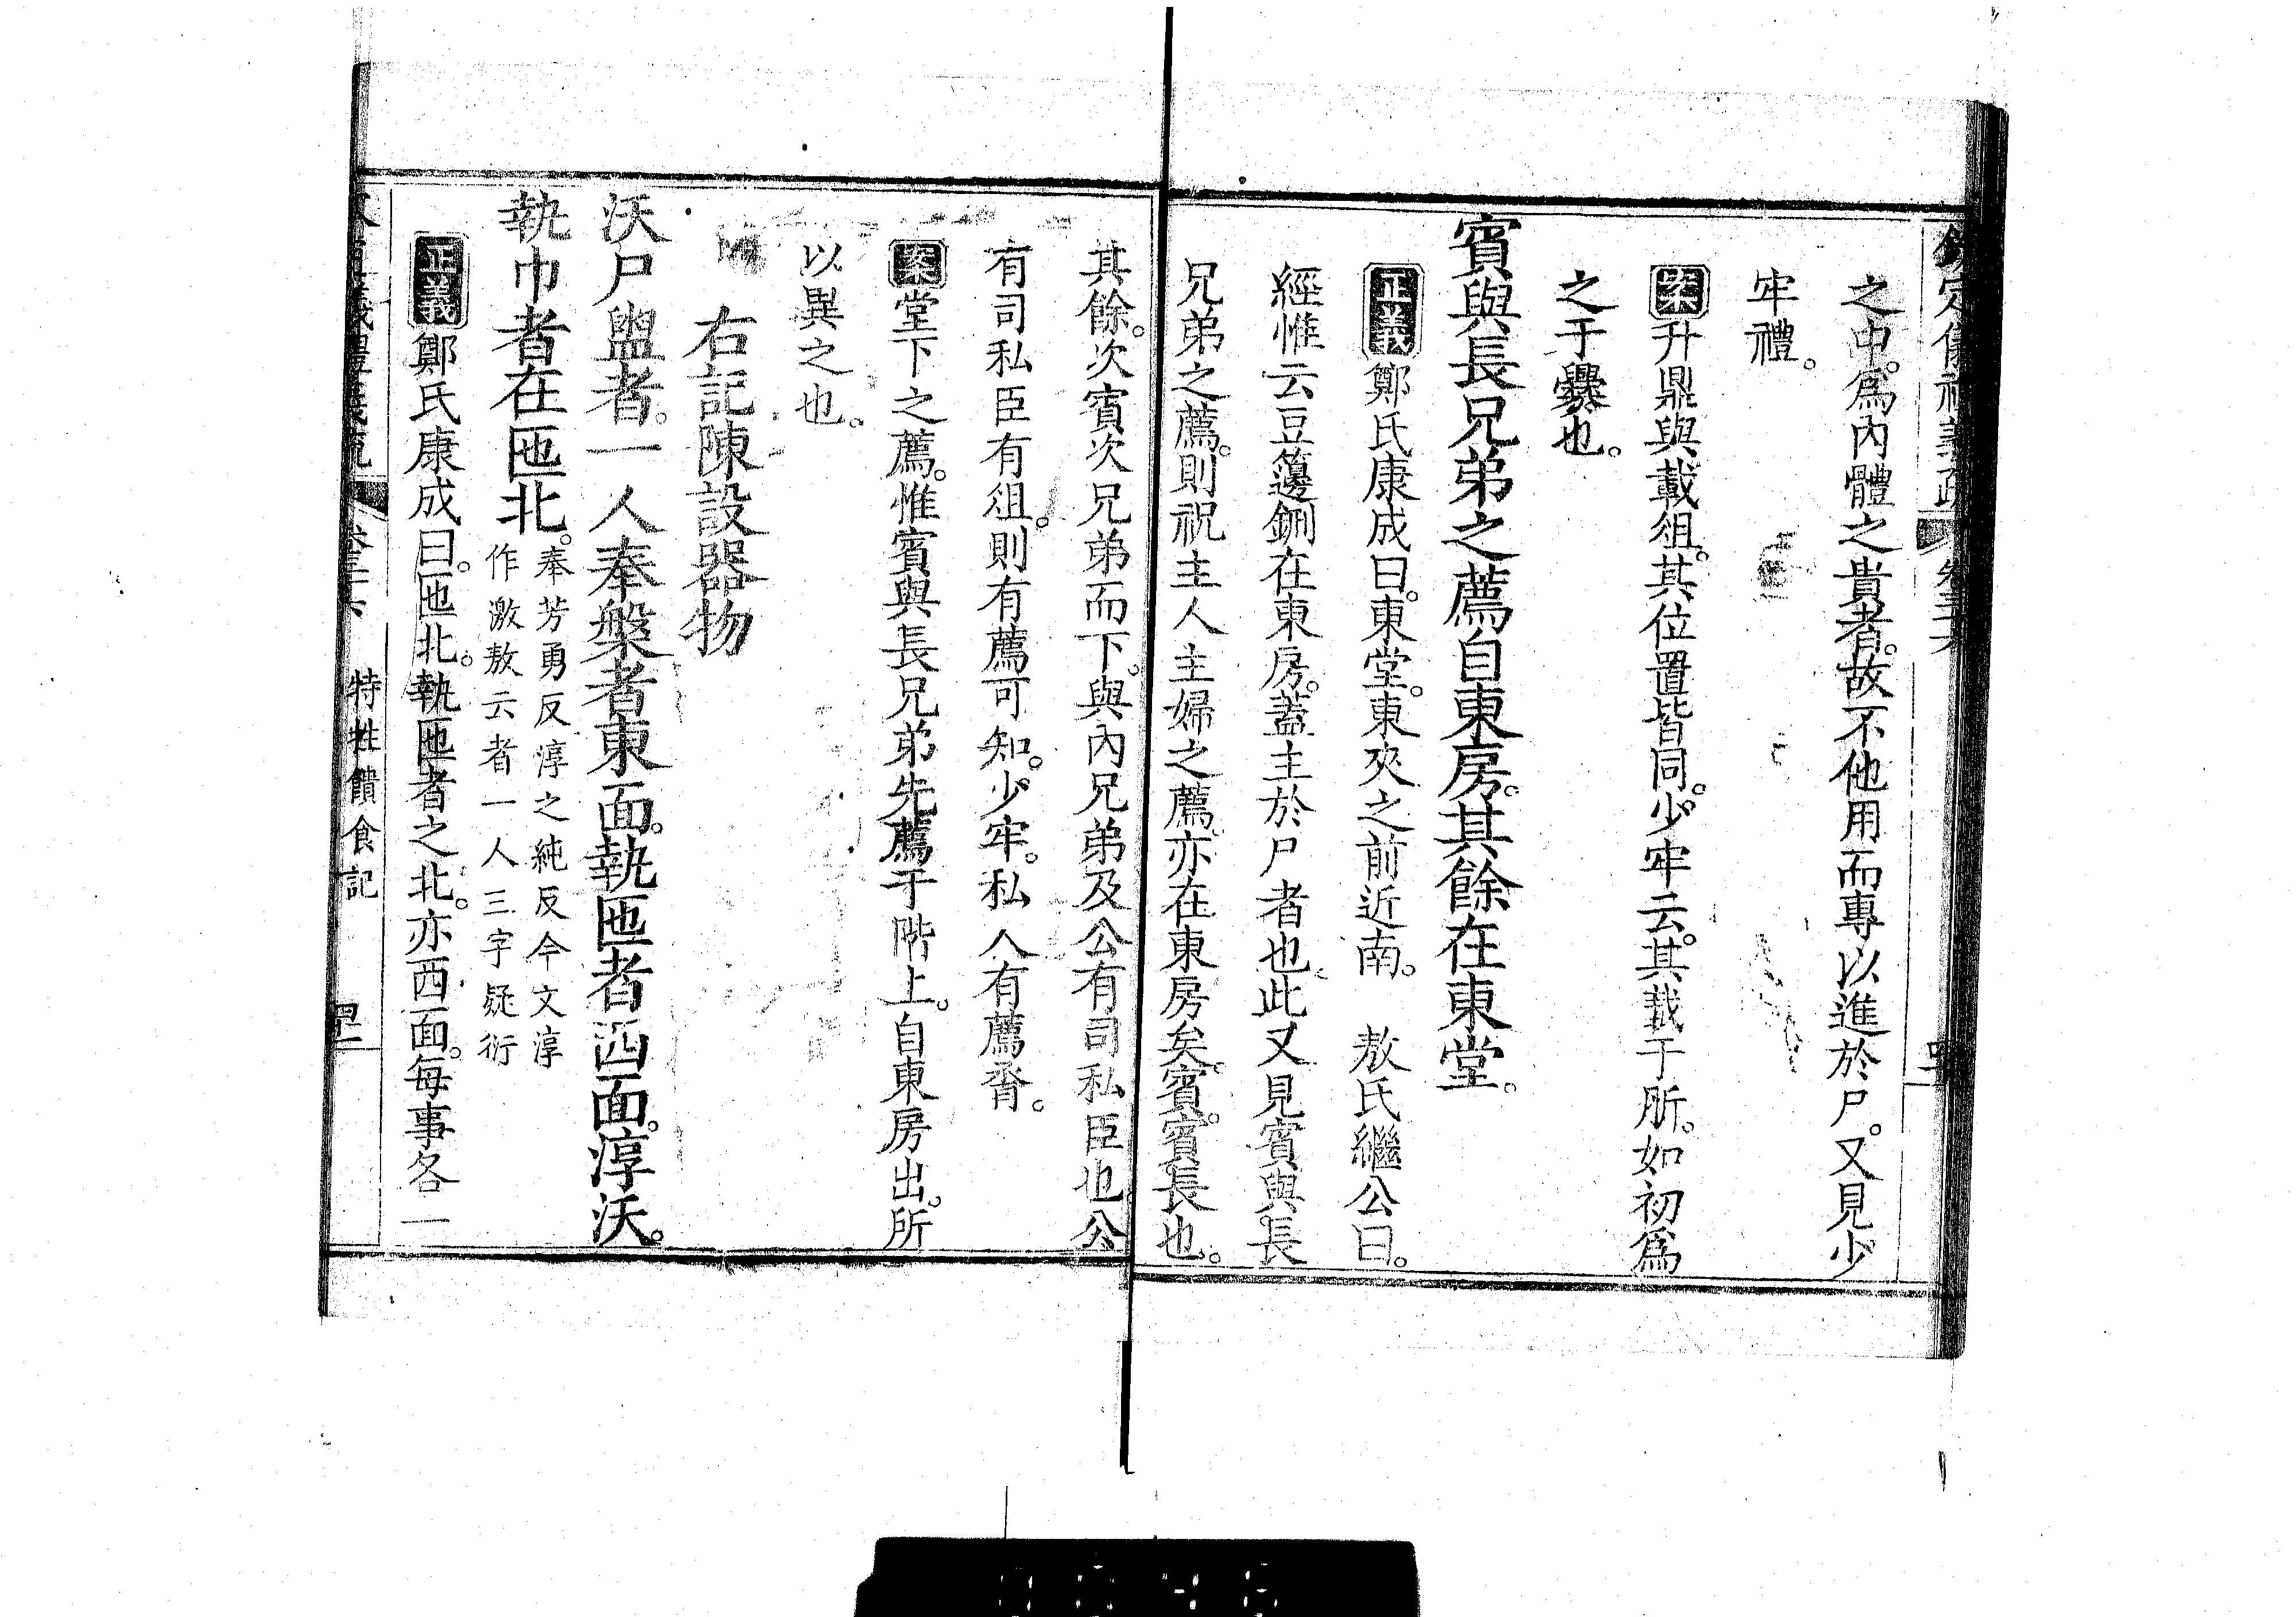 欽定儀禮義疏 卷三十六
之中。爲內體之貴者。故不他用而專以進於尸。又見少
牢禮。
案升鼎與載俎。其位置皆同。少牢云。其載于肵。如初爲
之于爨也。
賓與長兄弟之薦自東房。其餘在東堂。
正義鄭氏康成曰。東堂。東夾之前近南。 敖氏繼公曰。
經惟云豆籩鉶在東房。蓋主於尸者也此又見賓與長
兄弟之薦。則祝主人主婦之薦。亦在東房矣。賓。賓長也。
其餘。次賓次兄弟而下。與內兄弟及公有司私臣也公
有司私臣有俎。則有薦可知。少牢。私人有薦脀。
案堂下之薦。惟賓與長兄弟先薦于階上。自東房出。所
以異之也。
右記陳設器物
沃尸盥者。一人奉槃者東面。執匜者西面。淳沃。
執巾者在匜北。奉芳勇反淳之純反今文淳
作激敖云者一人三字疑衍
正義鄭氏康成曰。匜北。執匜者之北。亦西面。每事各一
特牲饋食記